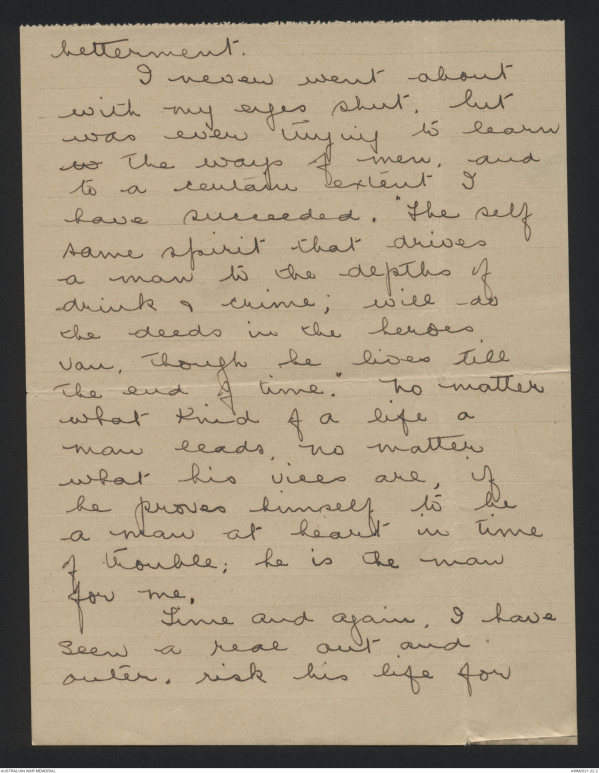 betterment.
I never went about
with my eyes shut, but
was ever trying to learn
to the ways of men, and
to a certain extent I
have succeeded. "The self
same spirit that drives
a man to the depths of
drink & crime; will do
the deeds in the heroes
van, though he lives till
the end of time." No matter
what kind of a life a
man leads, no matter
what his vices are, if
he proves himself to be
a man at heart in time
of trouble; he is the man
for me.
Time and again, I have
seen a real out and
outer, risk his life for
AUSTRALIAN WAR MEMORIAL